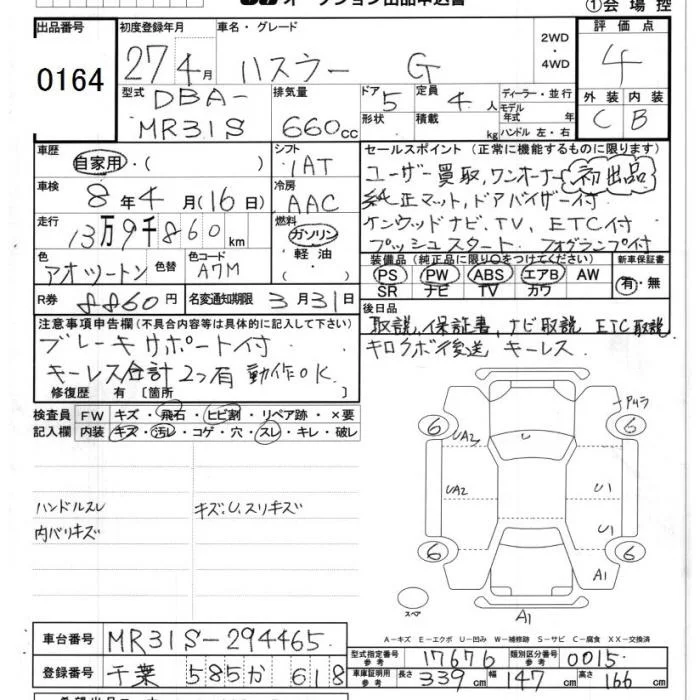 オークション出品申込書
①会場控
出品番号 初度登録年月 車名・グレード 2WD・4WD 評価点
0164 27 4月 ハスラー G 4
型式 排気量 ドア 定員 ディーラー・並行 外装 内装
DBA- 5 4人 モデル年式 年式 C B
MR31S 660cc 形状 積載 kg ハンドル 左・右
車歴 シフト セールスポイント (正常に機能するものに限ります)
自家用・( ) IAT ユーザー買取,ワンオーナー 初出品
車検 冷房 純正マット,ドアバイザー付
8年4月(16日) AAC ケンウッドナビ,TV,ETC付
走行 燃料 プッシュスタート フォグランプ付
13万9千860km ガソリン・軽油・( )
装備品 (純正品に限り○をつけてください) 新車保証書
色 色替 色コード PS PW ABS エアB AW 有・無
アオツートン A7M SR ナビ TV カワ
R券 8860円 名変通知期限 3月31日 後日品
注意事項申告欄(不具合内容等は具体的に記入して下さい) 取説,保証書,ナビ取説 ETC取説
ブレーキサポート付 キロクボ後送 キーレス
キーレス合計2つ有 動作OK.
修復歴 有[箇所 ]
検査員 FW キズ・飛石・ヒビ割・リペア跡・×要
記入欄 内装 キズ・汚レ・コゲ・穴・スレ・キレ・破レ
6 6
UA2 U
UA2 U1
ハンドルスレ キズ,U,スリキズ
内バリキズ U1
6 6
A1
スペア A1
A-キズ E-エクボ U-凹み W-補修跡 S-サビ C-腐食 XX-交換済
車台番号 MR31S-294465
型式指定番号 参考 17676 類別区分番号 参考 0015
登録番号 千葉 585 か 618
車庫証明用 参考 長さ 339cm 幅 147cm 高さ 166cm